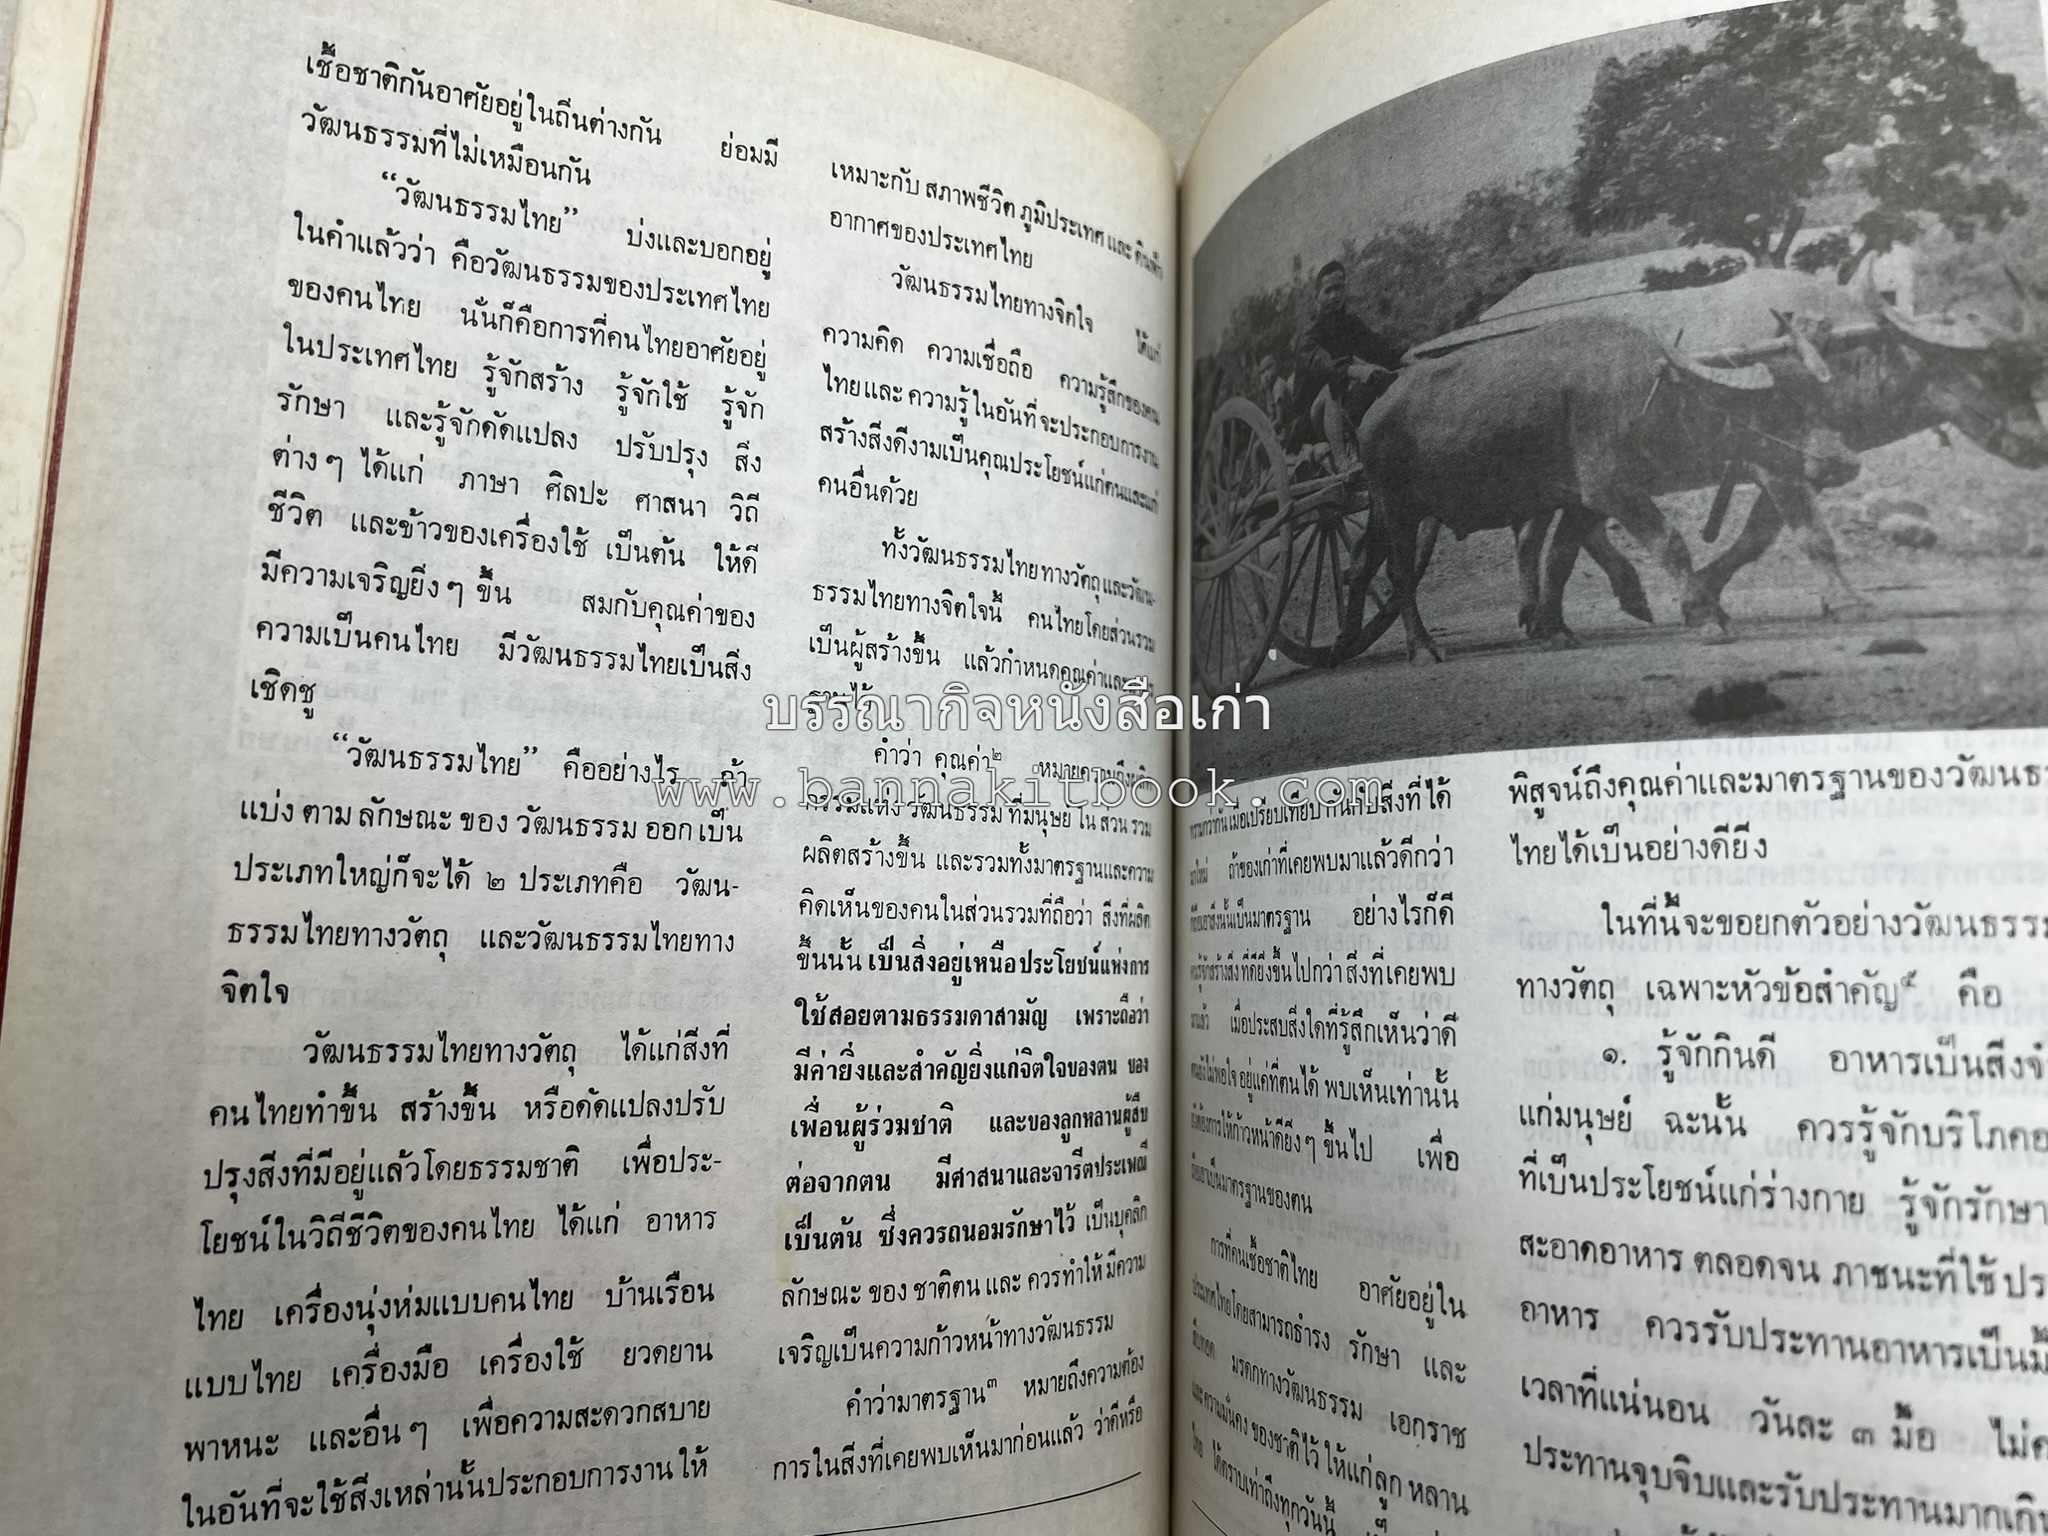 เชื้อชาติกันอาศัยอยู่ในถิ่นต่างกัน ย่อมมี
วัฒนธรรมที่ไม่เหมือนกัน
“วัฒนธรรมไทย” บ่งและบอกอยู่
ในคำแล้วว่า คือวัฒนธรรมของประเทศไทย
ของคนไทย นั่นก็คือการที่คนไทยอาศัยอยู่
ในประเทศไทย รู้จักสร้าง รู้จักใช้ รู้จัก
รักษา และรู้จักดัดแปลง ปรับปรุง สิ่ง
ต่างๆ ได้แก่ ภาษา ศิลปะ ศาสนา วิถี
ชีวิต และข้าวของเครื่องใช้ เป็นต้น ให้ดี
มีความเจริญยิ่งๆ ขึ้น สมกับคุณค่าของ
ความเป็นคนไทย มีวัฒนธรรมไทยเป็นสิ่ง
เชิดชู
“วัฒนธรรมไทย” คืออย่างไร ถ้า
แบ่ง ตาม ลักษณะ ของ วัฒนธรรม ออก เป็น
ประเภทใหญ่ก็จะได้ ๒ ประเภทคือ วัฒน-
ธรรมไทยทางวัตถุ และวัฒนธรรมไทยทาง
จิตใจ
วัฒนธรรมไทยทางวัตถุ ได้แก่สิ่งที่
คนไทยทำขึ้น สร้างขึ้น หรือดัดแปลงปรับ
ปรุงสิ่งที่มีอยู่แล้วโดยธรรมชาติ เพื่อประ-
โยชน์ในวิถีชีวิตของคนไทย ได้แก่ อาหาร
ไทย เครื่องนุ่งห่มแบบคนไทย บ้านเรือน
แบบไทย เครื่องมือ เครื่องใช้ ยวดยาน
พาหนะ และอื่นๆ เพื่อความสะดวกสบาย
ในอันที่จะใช้สิ่งเหล่านั้นประกอบการงานให้
เหมาะกับ สภาพชีวิต ภูมิประเทศ และ ดินฟ้า
อากาศของประเทศไทย
วัฒนธรรมไทยทางจิตใจ ได้แก่
ความคิด ความเชื่อถือ ความรู้สึกของคน
ไทยและ ความรู้ในอันที่จะประกอบการงาน
สร้างสิ่งดีงามเป็นคุณประโยชน์แก่ตนและแก่
คนอื่นด้วย
ทั้งวัฒนธรรมไทยทางวัตถุและวัฒน-
ธรรมไทยทางจิตใจนี้ คนไทยโดยส่วนรวม
เป็นผู้สร้างขึ้น แล้วกำหนดคุณค่าและ
บรรณากิจหนังสือเก่า
คำว่า คุณค่า๒ หมายความถึง
www.bannakitbook.com
แห่ง วัฒนธรรม ที่มนุษย์ ใน ส่วน รวม
ผลิตสร้างขึ้น และรวมทั้งมาตรฐานและความ
คิดเห็นของคนในส่วนรวมที่ถือว่า สิ่งที่ผลิต
ขึ้นนั้น เป็นสิ่งอยู่เหนือประโยชน์แห่งการ
ใช้สอยตามธรรมดาสามัญ เพราะถือว่า
มีค่ายิ่งและสำคัญยิ่งแก่จิตใจของตน ของ
เพื่อนผู้ร่วมชาติ และของลูกหลานผู้สืบ
ต่อจากตน มีศาสนาและจารีตประเพณี
เป็นต้น ซึ่งควรถนอมรักษาไว้ เป็นบุคลิก
ลักษณะ ของ ชาติตน และ ควรทำให้ มีความ
เจริญเป็นความก้าวหน้าทางวัฒนธรรม
คำว่ามาตรฐาน๓ หมายถึงความต้อง
การในสิ่งที่เคยพบเห็นมาก่อนแล้ว ว่าดีหรือ
เมื่อเปรียบเทียบ กันกับสิ่งที่ ได้
ถ้าของเก่าที่เคยพบมาแล้วดีกว่า
เป็นมาตรฐาน อย่างไรก็ดี
ที่ดียิ่งขึ้นไปกว่า สิ่งที่เคยพบ
เมื่อประสบสิ่งใดที่รู้สึกเห็นว่าดี
อยู่แค่ที่ตนได้ พบเห็นเท่านั้น
ให้ก้าวหน้าดียิ่งๆ ขึ้นไป เพื่อ
เป็นมาตรฐานของตน
การที่คนเชื้อชาติไทย อาศัยอยู่ใน
ประเทศไทยโดยสามารถธำรง รักษา และ
สืบทอด มรดกทางวัฒนธรรม เอกราช
และ ความมั่นคง ของชาติไว้ ให้แก่ลูก หลาน
ไทย ได้ตราบเท่าถึงทุกวันนี้
พิสูจน์ถึงคุณค่าและมาตรฐานของวัฒนธ
ไทยได้เป็นอย่างดียิ่ง
ในที่นี้จะขอยกตัวอย่างวัฒนธรรม
ทางวัตถุ เฉพาะหัวข้อสำคัญ๕ คือ
๑. รู้จักกินดี อาหารเป็นสิ่งจำ
แก่มนุษย์ ฉะนั้น ควรรู้จักบริโภคอ
ที่เป็นประโยชน์แก่ร่างกาย รู้จักรักษา
สะอาดอาหาร ตลอดจน ภาชนะที่ใช้ ปร
อาหาร ควรรับประทานอาหารเป็นมื้
เวลาที่แน่นอน วันละ ๓ มื้อ ไม่ค
ประทานจุบจิบและรับประทานมากเกิน